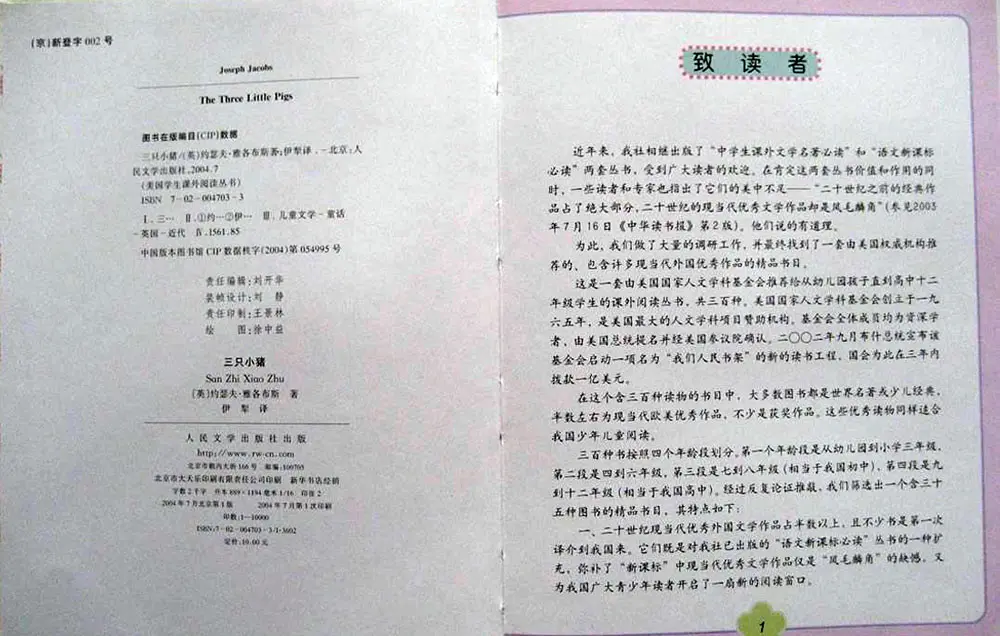 (京)新登字 002 号
Joseph Jacobs
The Three Little Pigs
图书在版编目(CIP)数据
三只小猪/(英)约瑟夫·雅各布斯著;伊犁译. -北京:人
民文学出版社,2004.7
(美国学生课外阅读丛书)
ISBN 7-02-004703-3
Ⅰ.三… Ⅱ.①约…②伊… Ⅲ.儿童文学-童话
-英国-近代 Ⅳ.I561.85
中国版本图书馆 CIP 数据核字(2004)第 054995 号
责任编辑:刘开华
装帧设计:刘 静
责任印制:王景林
绘 图:徐中益
三只小猪
San Zhi Xiao Zhu
(英)约瑟夫·雅各布斯 著
伊 犁 译
人民文学出版社出版
http://www.rw-cn.com
北京市朝内大街 166 号 邮编:100705
北京市大天乐印刷有限责任公司印刷 新华书店经销
字数 2 千字 开本 889×1194 毫米 1/16 印张 2
2004 年 7 月北京第 1 版 2004 年 7 月第 1 次印刷
印数:1-10000
ISBN:7-02-004703-3/I·3602
定价:10.00 元
致 读 者
近年来,我社相继出版了“中学生课外文学名著必读”和“语文新课标
必读”两套丛书,受到广大读者的欢迎。在肯定这两套丛书价值和作用的同
时,一些读者和专家也指出了它们的美中不足——“二十世纪之前的经典作
品占了绝大部分,二十世纪的现当代优秀文学作品却是凤毛麟角”(参见2003
年7月16日《中华读书报》第2版)。他们说的有道理。
为此,我们做了大量的调研工作,并最终找到了一套由美国权威机构推
荐的、包含许多现当代外国优秀作品的精品书目。
这是一套由美国国家人文学科基金会推荐给从幼儿园孩子直到高中十二
年级学生的课外阅读丛书,共三百种。美国国家人文学科基金会创立于一九
六五年,是美国最大的人文学科项目赞助机构。基金会全体成员均为资深学
者,由美国总统提名并经美国参议院确认。二〇〇二年九月布什总统宣布该
基金会启动一项名为“我们人民书架”的新的读书工程,国会为此在三年内
拨款一亿美元。
在这个含三百种读物的书目中,大多数图书都是世界名著或少儿经典,
半数左右为现当代欧美优秀作品,不少是获奖作品。这些优秀读物同样适合
我国少年儿童阅读。
三百种书按照四个年龄段划分。第一个年龄段是从幼儿园到小学三年级,
第二段是四到六年级,第三段是七到八年级(相当于我国初中),第四段是九
到十二年级(相当于我国高中)。经过反复论证推敲,我们筛选出一个含三十
五种图书的精品书目,其特点如下:
一、二十世纪现当代优秀外国文学作品占半数以上,且不少书是第一次
译介到我国来。它们既是对我社已出版的“语文新课标必读”丛书的一种扩
充,弥补了“新课标”中现当代优秀文学作品仅是“凤毛麟角”的缺憾,又
为我国广大青少年读者开启了一扇新的阅读窗口。
1